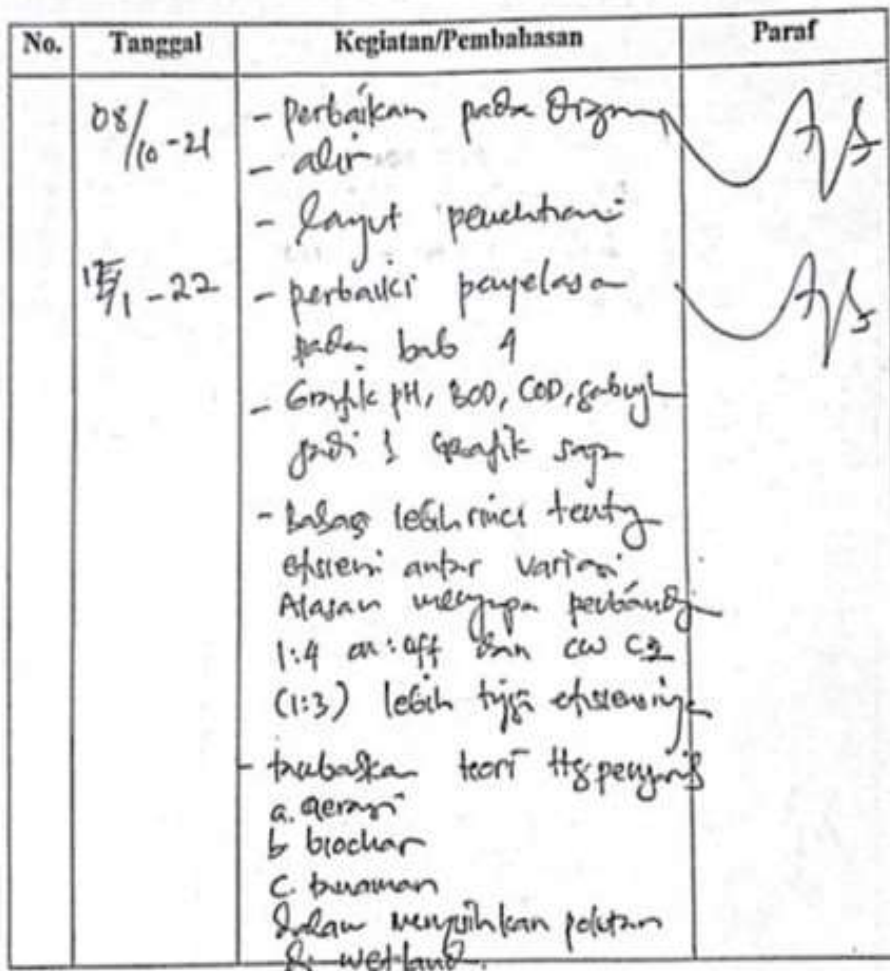 No. Tanggal Kegiatan/Pembahasan Paraf
08/10-21 - Perbaikan pada
- alir
- Lanjut penelitian
/1-22 - perbaiki penjelasan
pada bab 4
- Grafik pH, BOD, COD, gabung
jadi 1 Grafik saja
- Bahas lebih rinci tentg
efisiensi antar variasi
Alasan mengapa perbandg
1:4 on:off dan CW C2
(1:3) lebih tinggi efisiensinya
- tambahkan teori
a. aerasi
b biochar
c. tanaman
dalam menyisihkan polutan
di wetland.